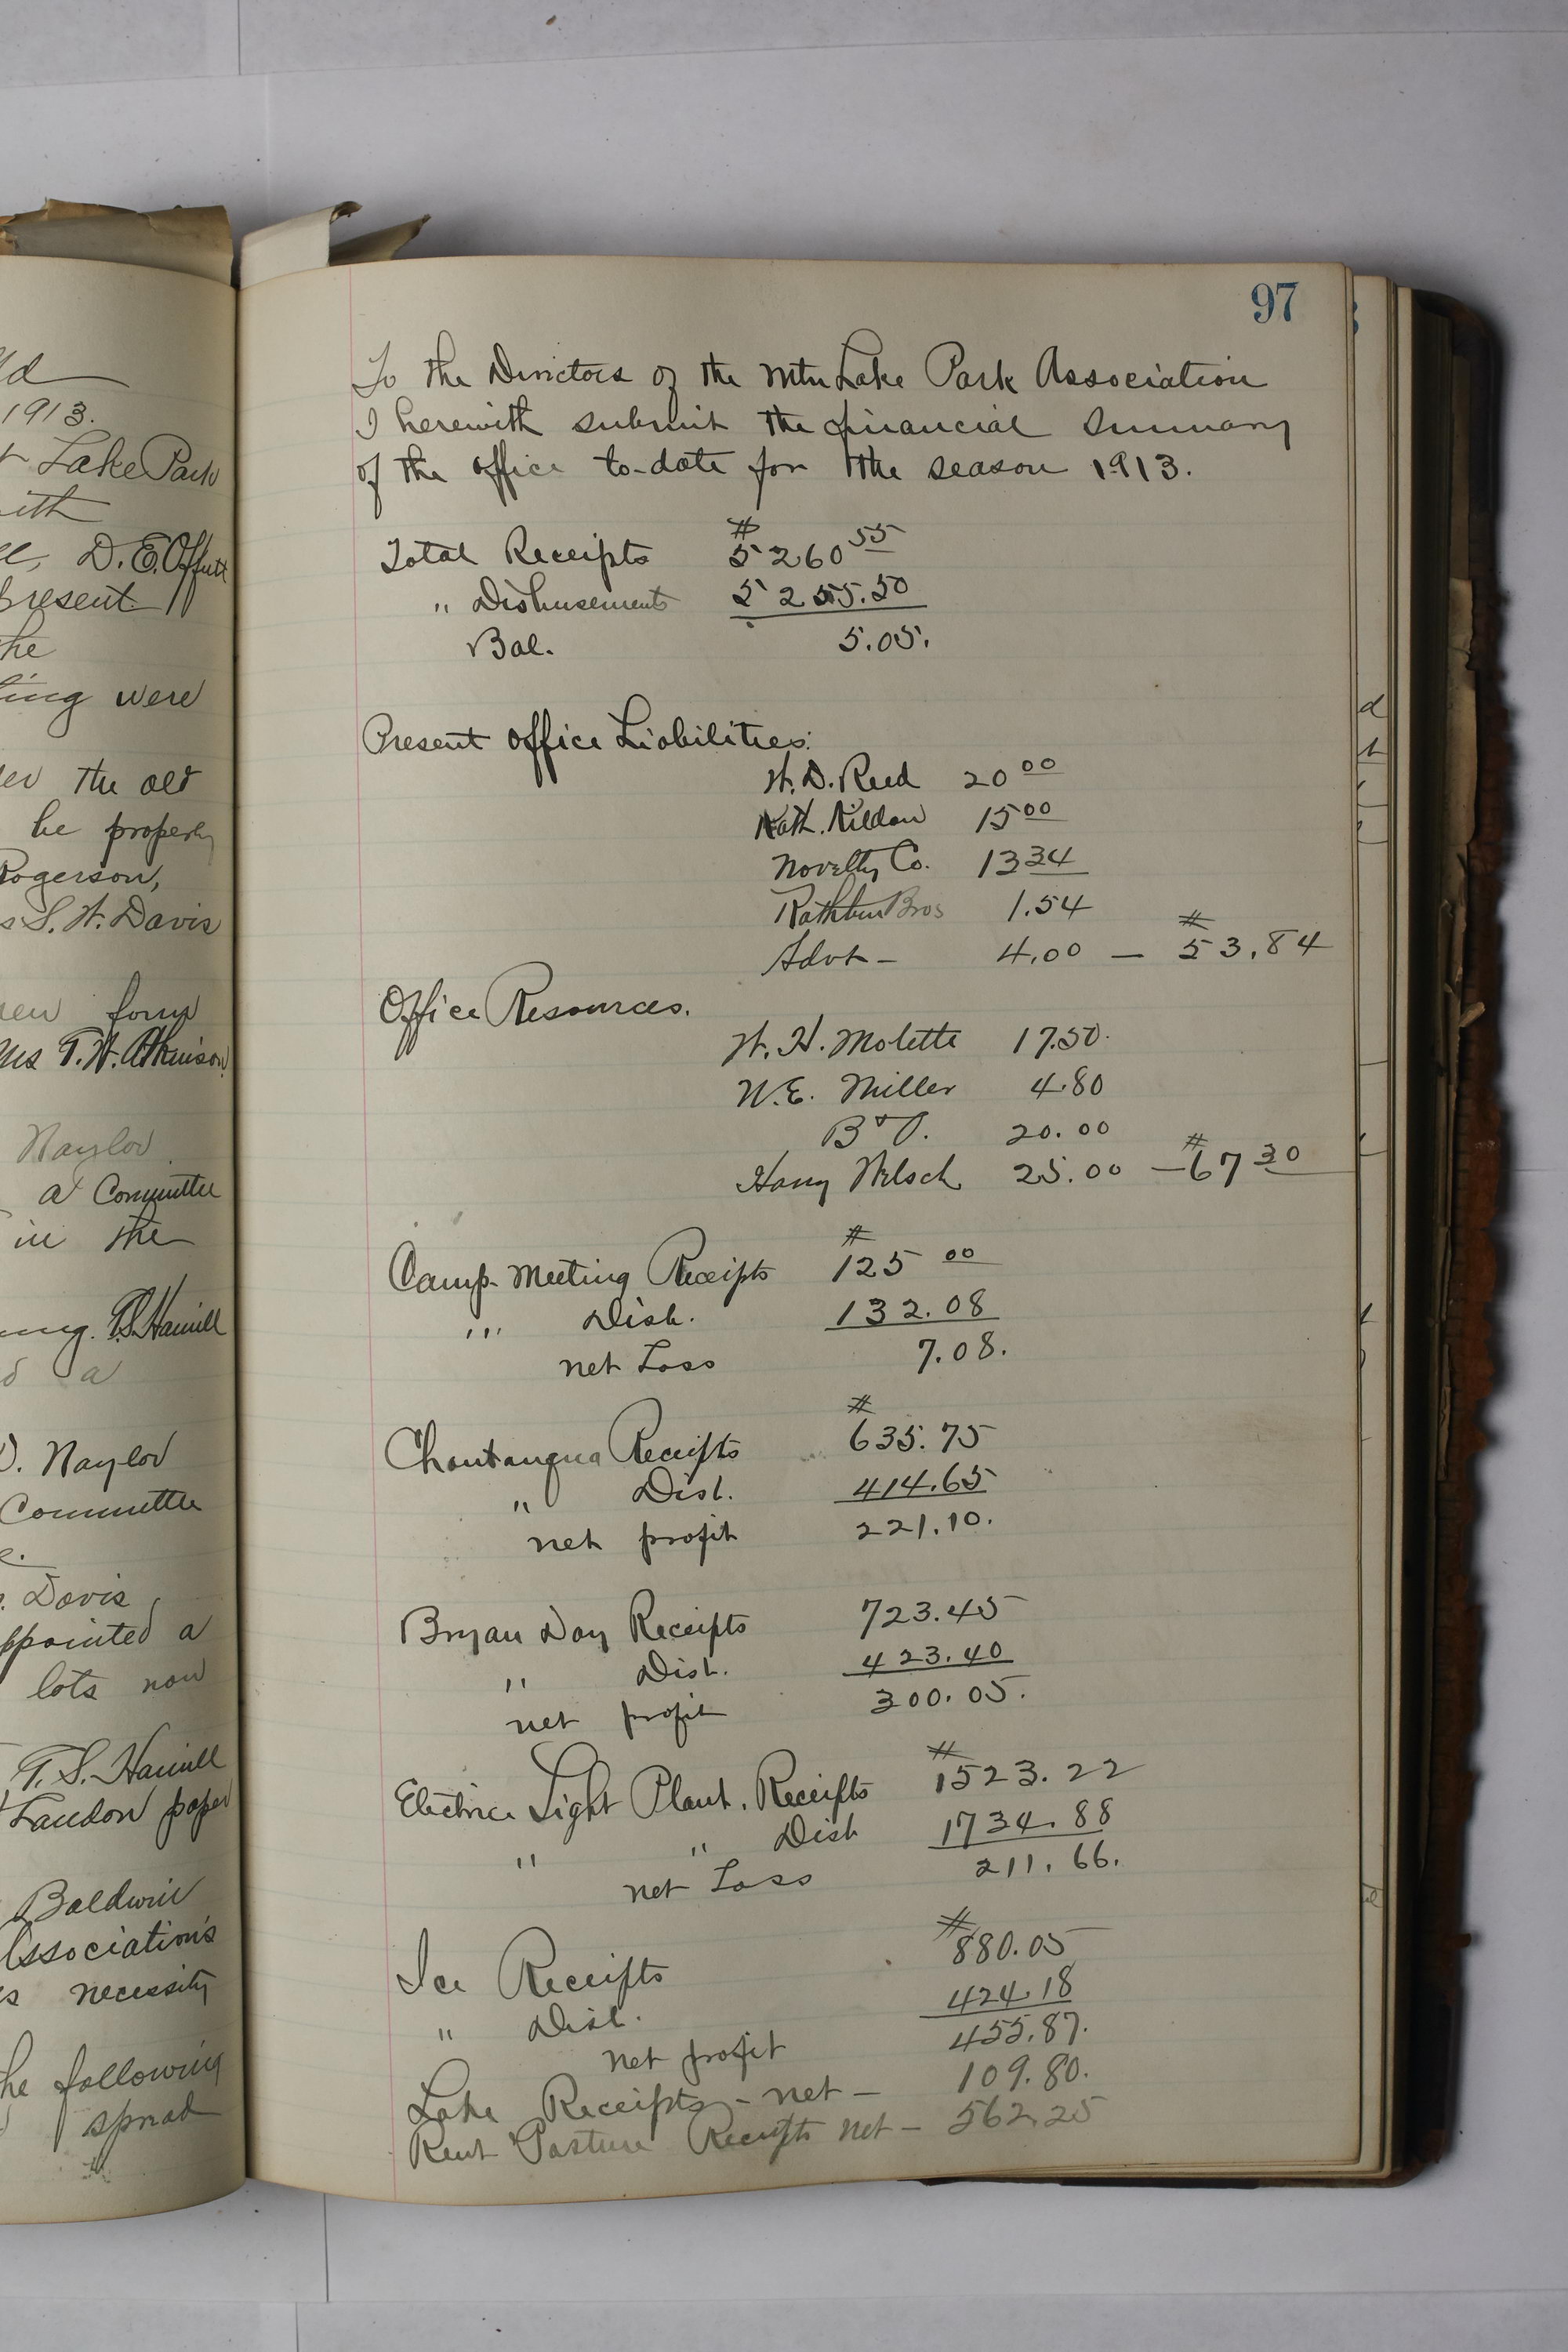 1913.
Lake Park
ith
D. E. Offutt
present
he
ting were
the old
be properly
Rogerson,
S. W. Davis
form
T. W. Atkinson
Naylor
a Committee
in the
T. S. Hamill
a
D. Naylor
Committee
Davis
ppointed a
lots now
T. S. Hamill
Landon paper
Baldwin
Association's
necessity
he following
spread
97
To the Directors of the Mtn Lake Park Association
I herewith submit the financial Summary
of the office to-date for the season 1913.
Total Receipts $5260 55
" Disbursements 5255.50
Bal. 5.05.
Present Office Liabilities:
W. D. Reed 20 00
Kath. Kildow 15 00
Novelty Co. 13 34
Rathbun Bros 1.54
Advt - 4.00 — $53.84
Office Resources.
W. H. Molette 17.50.
W. E. Miller 4.80
B & O. 20.00
Harry Welsch 25.00 — $67 30
Camp-Meeting Receipts $125 00
" Disb. 132.08
net Loss 7.08.
Chautauqua Receipts $635.75
" Disb. 414.65
net profit 221.10.
Bryan Day Receipts 723.45
" Disb. 423.40
net profit 300.05.
Electric Light Plant. Receipts $1523.22
" " Disb 1734.88
net Loss 211.66.
Ice Receipts $880.05
" Disb. 424.18
net profit 455.87.
Lake Receipts - net - 109.80.
Rent Pasture Receipts net - 562.25